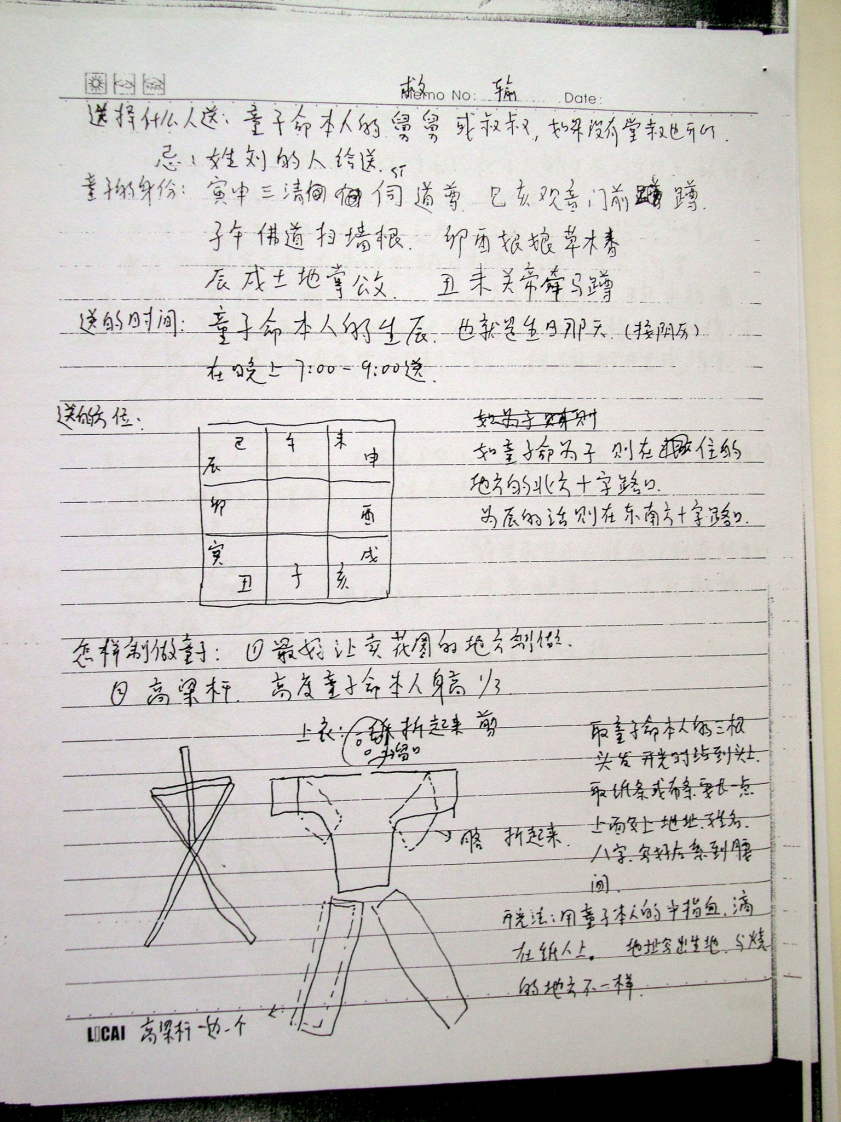 Memo No: Date:
选择什么人送: 童子命本人的舅舅或叔叔, 如果没有堂叔也可以.
忌: 姓刘的人给送.
童子的身份: 寅申三清 伺道尊. 巳亥观音门前 蹲.
子午佛道扫墙根. 卯酉娘娘草木春
辰戌土地掌公文. 丑未关帝牵马蹲
送的时间: 童子命本人的生辰. 也就是生日那天. (按阴历)
在晚上 7:00-9:00送.
送的方位:
巳 午 未
辰 申
卯 酉
寅 戌
丑 子 亥
如童子命为子 则在 住的
地方的北方十字路口.
为辰的话则在东南方十字路口.
怎样制做童子: ① 最好让卖花圈的地方制做.
② 高梁杆. 高度童子命本人身高 1/3
上衣: 折起来 剪
取童子命本人的三根
头发 开光时 到头上.
取纸条或布条要长一点
上面写上 地址. 姓名.
八字. 写好后系到腰
间.
胳 折起来.
开光法: 用童子本人的中指血, 滴
在纸人上。 地址写出生地. 与烧
的地方不一样.
LOCAI 高梁杆一边一个